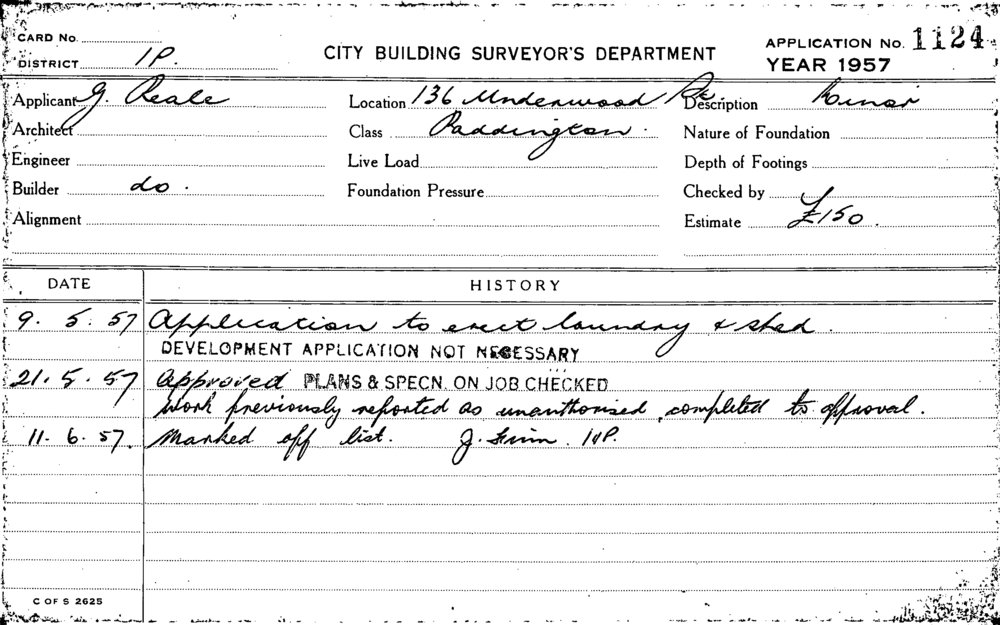 CARD No.
DISTRICT 1P.
CITY BUILDING SURVEYOR'S DEPARTMENT
APPLICATION No. 1124
YEAR 1957
Applicant G. Reale
Location 136 Underwood
Description Minor
Architect
Class Paddington.
Nature of Foundation
Engineer
Live Load
Depth of Footings
Builder do.
Foundation Pressure
Checked by
Alignment
Estimate £150.
DATE HISTORY
9. 5. 57 Application to erect laundry & shed.
DEVELOPMENT APPLICATION NOT NECESSARY
21. 5. 57 Approved PLANS & SPECN. ON JOB CHECKED
Work previously reported as unauthorised, completed to approval.
11. 6. 57. Marked off list. J.
C OF S 2625